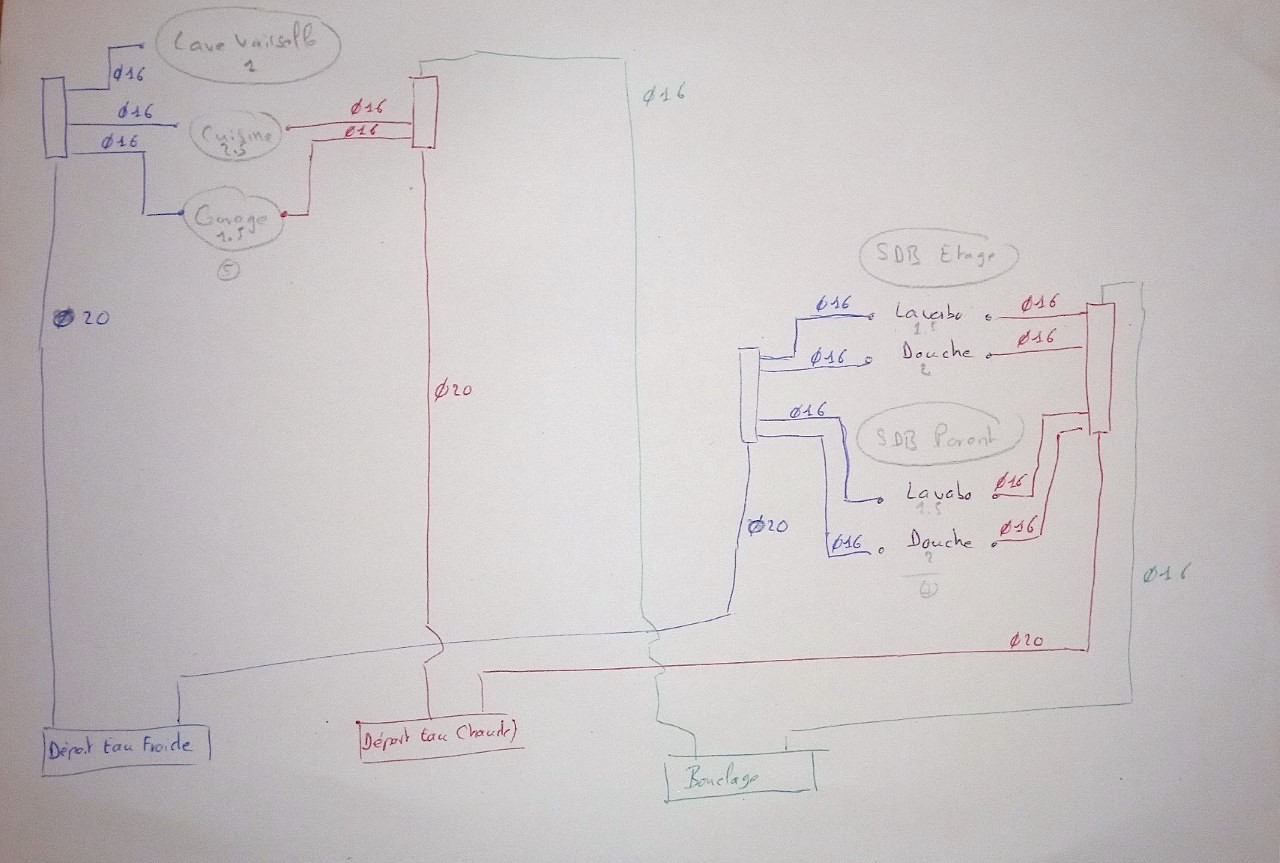 Lave Vaisselle
1
Ø16
Ø16
Ø16
Cuisine
2.5
Ø16
Ø16
Garage
1.5
5
Ø20
Ø20
Ø16
SDB Etage
Ø16
Lavabo
1.5
Ø16
Ø16
Douche
2
Ø16
SDB Parent
Ø16
Lavabo
1.5
Ø16
Ø16
Douche
2
Ø16
Ø20
Ø16
Ø20
Départ Eau Froide
Départ Eau Chaude
Bouclage